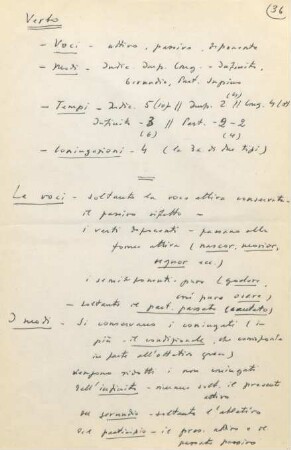 (36)
Verbo
- Voci - attiva, passiva, deponente
- Modi - Indic. Imp. Cong. - Infinito,
Gerundio, Part. Supino
(4)
- Tempi - Indic. 5 // Imp. 2 // Cong. 4
Infinito - 3 // Part. - 2
(6) (4)
- Coniugazioni - 4 (la 3a di due tipi)
Le voci - soltanto la voce attiva conservata
il passivo rifatto -
i verbi deponenti - passano alla
forma attiva (nascor, morior,
sequor ecc)
i semideponenti pure (gaudeo,
soltanto il part. passato
I modi - Si conservano i coniugati (in
più - il condizionale, che corrisponde
in parte all'ottativo greco)
vengono ridotti i non coniugati
dell'infinito - rimane solt. il presente
attivo
del gerundio - soltanto l'ablativo
del participio - il pres. attivo e il
passato passivo